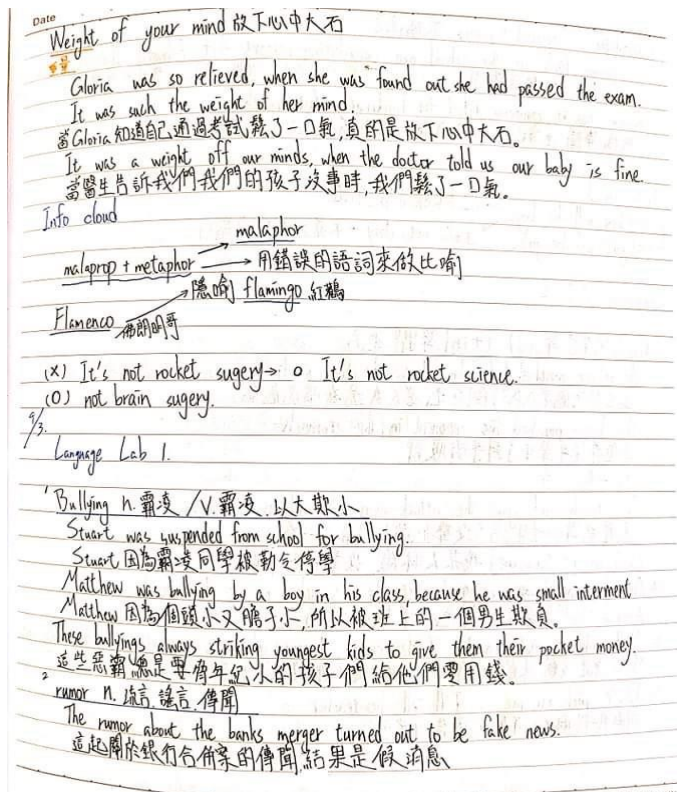 Date
Weight of your mind 放下心中大石
重量
Gloria was so relieved, when she was found out she had passed the exam.
It was such the weight of her mind.
當Gloria知道自己通過考試鬆了一口氣,真的是放下心中大石。
It was a weight off our minds, when the doctor told us our baby is fine.
當醫生告訴我們我們的孩子沒事時,我們鬆了一口氣。
Info cloud
malaphor
malaprop + metaphor → 用錯誤的語詞來做比喻
隱喻 flamingo 紅鶴
Flamenco 佛朗明哥
(x) It's not rocket sugery→ o It's not rocket science.
(O) not brain sugery.
9/3.
Language Lab 1.
1 Bullying n. 霸凌 /v. 霸凌, 以大欺小
Stuart was suspended from school for bullying.
Stuart 因為霸凌同學被勒令停學
Matthew was ballying by a boy in his class, because he was small interment
Matthew 因為個頭小又膽子小,所以被班上的一個男生欺負。
These bullyings always striking youngest kids to give them their pocket money.
這些惡霸總是要脅年紀小的孩子們給他們零用錢。
2 rumor n. 流言, 謠言, 傳聞
The rumor about the banks merger turned out to be fake news.
這起關於銀行合併案的傳聞,結果是假消息